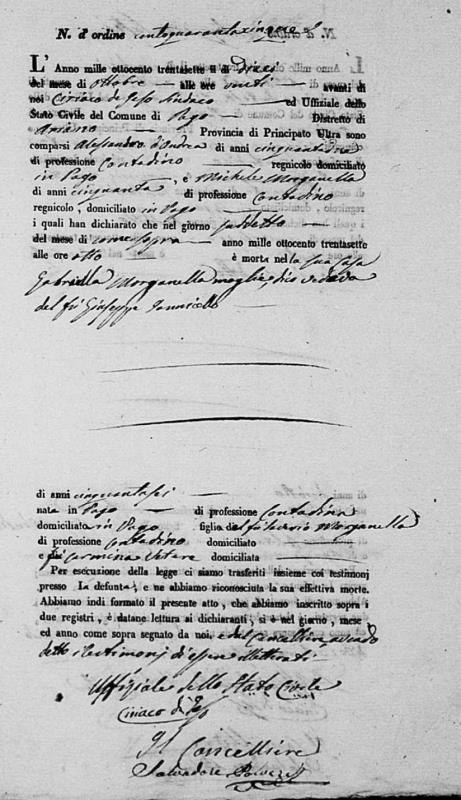 N. d'ordine centoquarantacinque
L'Anno mille ottocento trentasette il dì Dieci
del mese di Ottobre alle ore venti avanti di
noi Ciriaco de Sindaco ed Uffiziale dello
Stato Civile del Comune di Pago Distretto di
Ariano Provincia di Principato Ultra sono
comparsi Alessandro d'Andrea di anni cinquantatre
di professione Contadino regnicolo domiciliato
in Pago, e Michele Morganella
di anni cinquanta di professione Contadino
regnicolo, domiciliato in Pago
i quali han dichiarato che nel giorno suddetto
del mese di come sopra anno mille ottocento trentasette
alle ore otto è morta nella sua casa
Gabriella Morganella moglie, dico vedova
del fù Giuseppe Iannicello
di anni cinquantasei
nata in Pago di professione Contadina
domiciliato in Pago figlia del fù Morganella
di professione Contadino domiciliato
e fù Carmina domiciliata
Per esecuzione della legge ci siamo trasferiti insieme coi testimonj
presso la defunta, e ne abbiamo riconosciuta la sua effettiva morte.
Abbiamo indi formato il presente atto, che abbiamo inscritto sopra i
due registri, è datane lettura ai dichiaranti, si è nel giorno, mese
ed anno come sopra segnato da noi, e dal Cancelliere, avendo
detto i testimonj d'essere illetterati
Uffiziale dello Stato Civile
Ciriaco de
Il Cancelliere
Salvadore